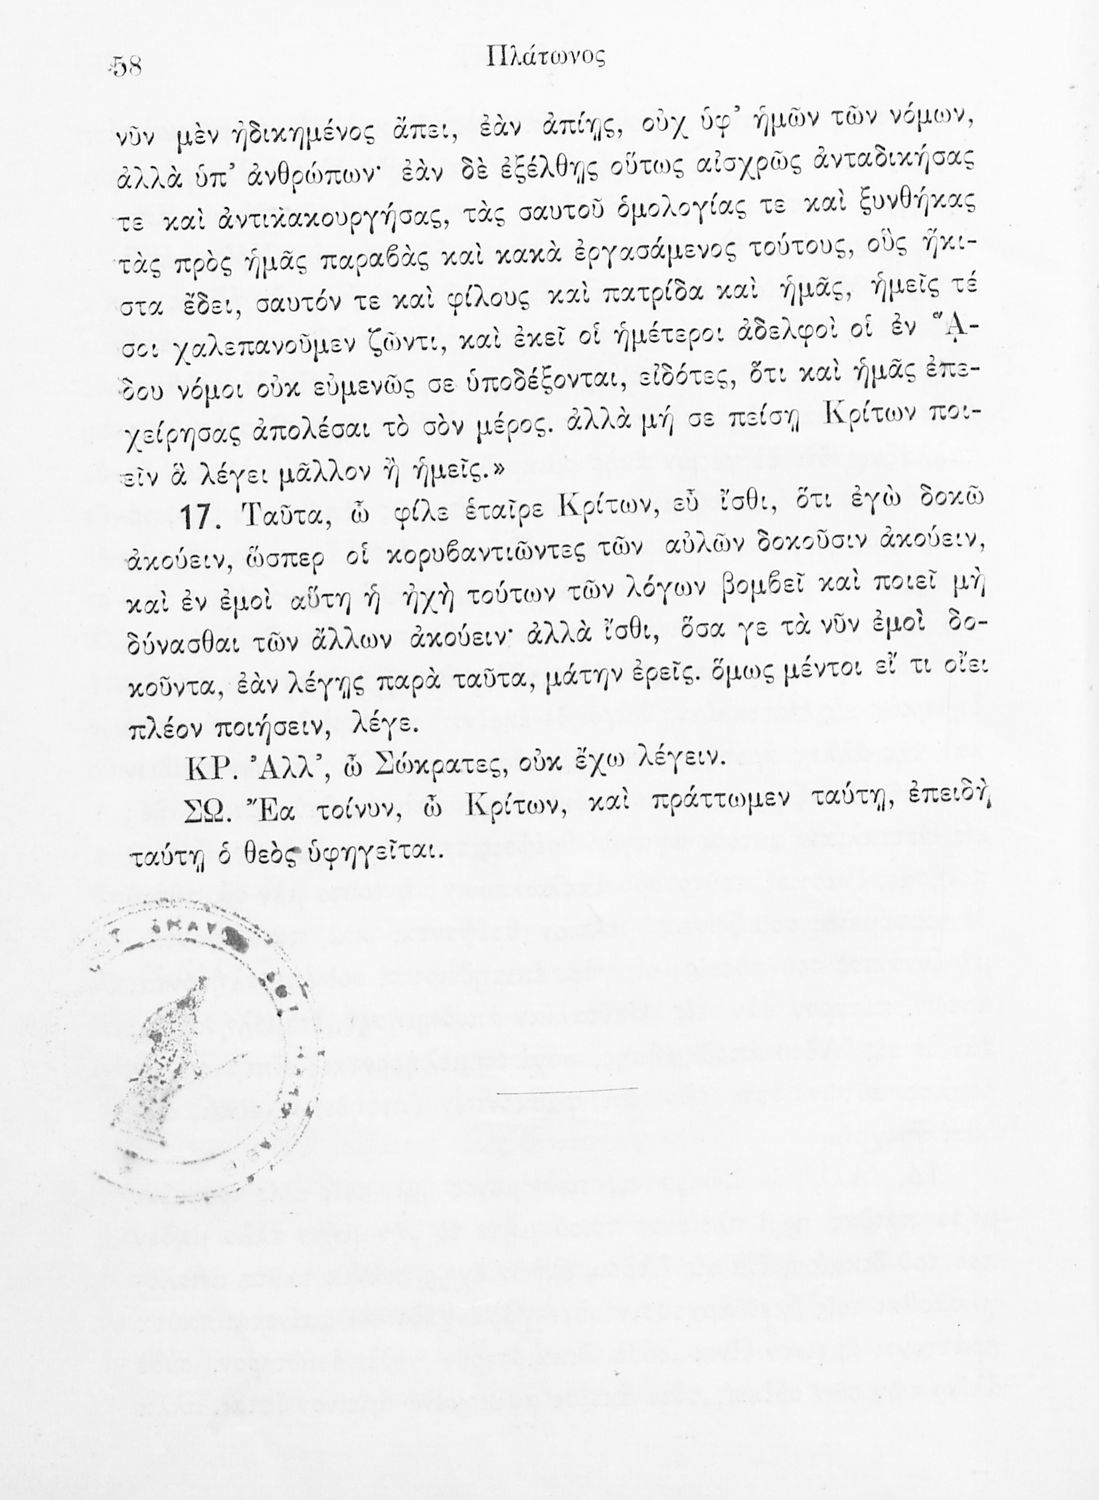 58
Πλάτωνος
νῦν μὲν ἠδικημένος ἄπει, ἐὰν ἀπίῃς, οὐχ ὑφ’ ἡμῶν τῶν νόμων,
ἀλλὰ ὑπ’ ἀνθρώπων· ἐὰν δὲ ἐξέλθῃς οὕτως αἰσχρῶς ἀνταδικήσας
τε καὶ ἀντικακουργήσας, τὰς σαυτοῦ ὁμολογίας τε καὶ ξυνθήκας
τὰς πρὸς ἡμᾶς παραβὰς καὶ κακὰ ἐργασάμενος τούτους, οὓς ἥκι-
στα ἔδει, σαυτόν τε καὶ φίλους καὶ πατρίδα καὶ ἡμᾶς, ἡμεῖς τέ
σοι χαλεπανοῦμεν ζῶντι, καὶ ἐκεῖ οἱ ἡμέτεροι ἀδελφοὶ οἱ ἐν ῞ᾼ-
δου νόμοι οὐκ εὐμενῶς σε ὑποδέξονται, εἰδότες, ὅτι καὶ ἡμᾶς ἐπε-
χείρησας ἀπολέσαι τὸ σὸν μέρος. ἀλλὰ μή σε πείσῃ Κρίτων ποι-
εῖν ἃ λέγει μᾶλλον ἢ ἡμεῖς.»
17. Ταῦτα, ὦ φίλε ἑταῖρε Κρίτων, εὖ ἴσθι, ὅτι ἐγὼ δοκῶ
ἀκούειν, ὥσπερ οἱ κορυβαντιῶντες τῶν αὐλῶν δοκοῦσιν ἀκούειν,
καὶ ἐν ἐμοὶ αὕτη ἡ ἠχὴ τούτων τῶν λόγων βομβεῖ καὶ ποιεῖ μὴ
δύνασθαι τῶν ἄλλων ἀκούειν· ἀλλὰ ἴσθι, ὅσα γε τὰ νῦν ἐμοὶ δο-
κοῦντα, ἐὰν λέγῃς παρὰ ταῦτα, μάτην ἐρεῖς. ὅμως μέντοι εἴ τι οἴει
πλέον ποιήσειν, λέγε.
ΚΡ. Ἀλλ’, ὦ Σώκρατες, οὐκ ἔχω λέγειν.
ΣΩ. Ἔα τοίνυν, ὦ Κρίτων, καὶ πράττωμεν ταύτῃ, ἐπειδὴ
ταύτῃ ὁ θεὸς ὑφηγεῖται.